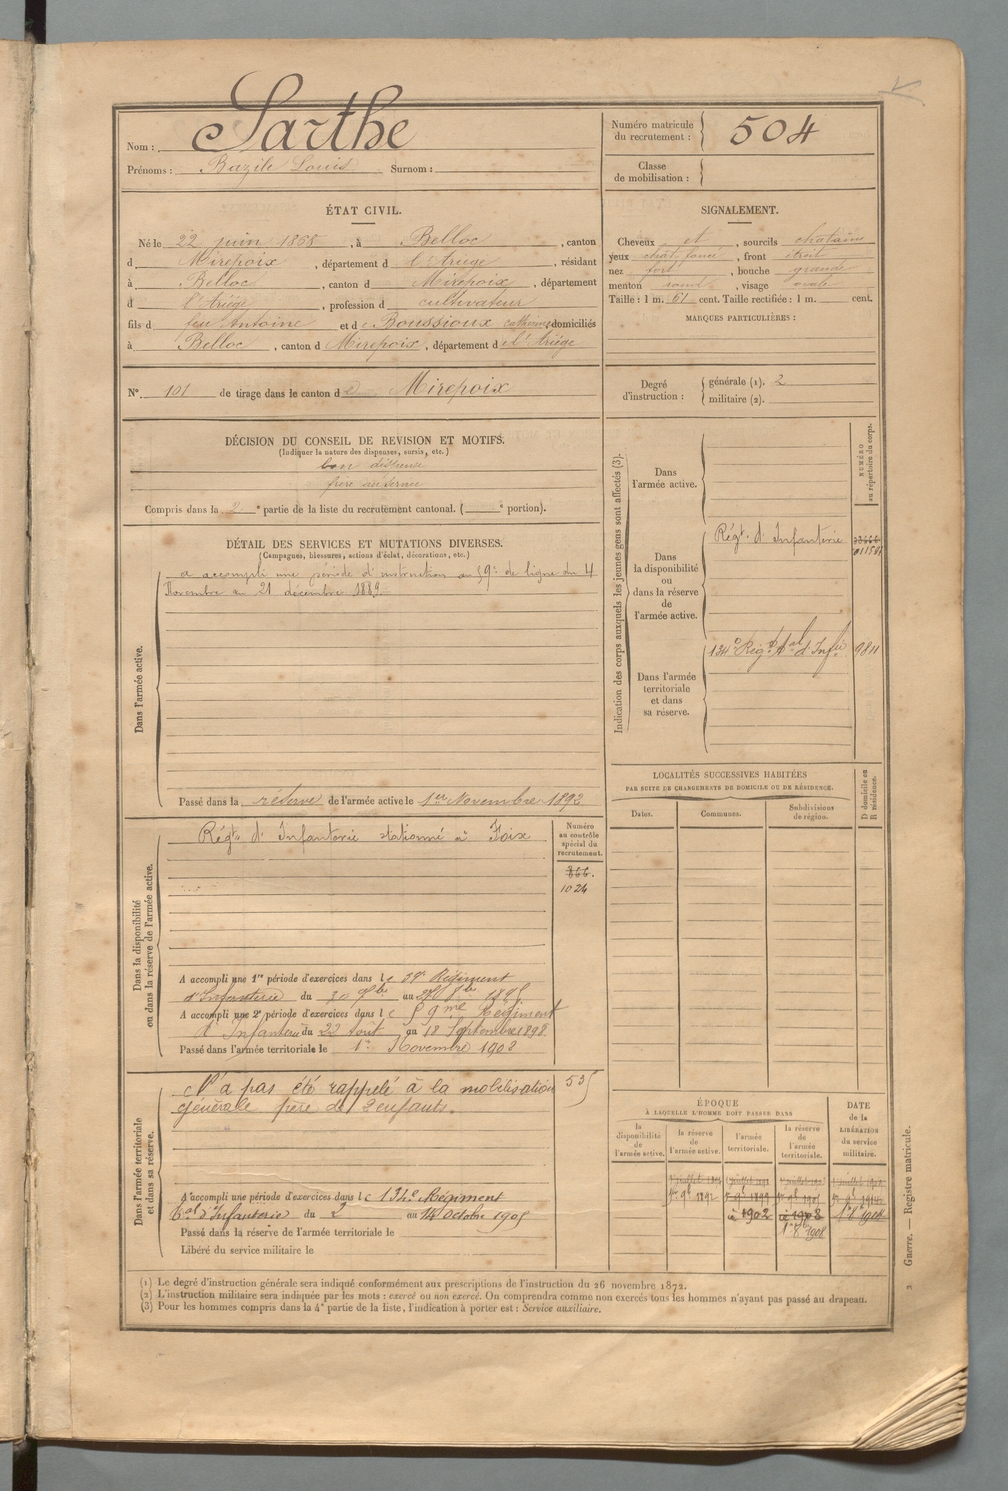 Nom : Sarthe
Prénoms : Bazile Louis Surnom :
Numéro matricule du recrutement : 504
Classe de mobilisation :
ÉTAT CIVIL.
Né le 22 juin 1868, à Belloc, canton
d Mirepoix, département d l'Ariège, résidant
à Belloc, canton d Mirepoix, département
d l'Ariège, profession d cultivateur
fils d feu Antoine et d Boussioux catherine domiciliés
à Belloc, canton d Mirepoix, département d l'Ariège
N° 101 de tirage dans le canton d e Mirepoix
SIGNALEMENT.
Cheveux et, sourcils chatains
yeux chat. foncé, front étroit
nez fort, bouche grande
menton rond, visage ovale
Taille : 1 m. 61 cent. Taille rectifiée : 1 m. cent.
MARQUES PARTICULIÈRES :
Degré d'instruction :
générale (1). 2
militaire (2).
DÉCISION DU CONSEIL DE REVISION ET MOTIFS.
(Indiquer la nature des dispenses, sursis, etc.)
bon dispensé
frère au service
Compris dans la 2e partie de la liste du recrutement cantonal. ( e portion).
DÉTAIL DES SERVICES ET MUTATIONS DIVERSES.
(Campagnes, blessures, actions d'éclat, décorations, etc.)
Dans l'armée active.
a accompli une période d'instruction au 59e de ligne du 4
Novembre au 21 décembre 1889.
Passé dans la réserve de l'armée active le 1er Novembre 1892
Dans la disponibilité ou dans la réserve de l'armée active.
Régt d'Infanterie stationné à Foix
Numéro au contrôle spécial du recrutement.
866.
1024
A accompli une 1re période d'exercices dans le 59e Régiment
d'Infanterie du 30 7bre au 8bre 1895
A accompli une 2e période d'exercices dans le 59me Régiment
d'Infanterie du 22 Août au 18 Septembre 1898
Passé dans l'armée territoriale le 1er Novembre 1902
Dans l'armée territoriale et dans sa réserve.
N'a pas été rappelé à la mobilisation
générale père de 2 enfants.
535
A accompli une période d'exercices dans le 134e Régiment
tal d'Infanterie du 2 au 14 octobre 1905
Passé dans la réserve de l'armée territoriale le
Libéré du service militaire le
Indication des corps auxquels les jeunes gens sont affectés (3).
NUMÉRO au répertoire du corps.
Dans l'armée active.
Dans la disponibilité ou dans la réserve de l'armée active.
Régt d'Infanterie
Dans l'armée territoriale et dans sa réserve.
134e Régt tal d'Infie 9811
LOCALITÉS SUCCESSIVES HABITÉES
PAR SUITE DE CHANGEMENTS DE DOMICILE OU DE RÉSIDENCE.
D domicile ou R résidence.
Dates. Communes. Subdivisions de région.
ÉPOQUE
À LAQUELLE L'HOMME DOIT PASSER DANS
la disponibilité de l'armée active.
la réserve de l'armée active.
l'armée territoriale.
la réserve de l'armée territoriale.
DATE de la LIBÉRATION du service militaire.
1er 9bre 1892
à 1902
à 1908
1er 8bre 1908
Guerre. — Registre matricule.
(1) Le degré d'instruction générale sera indiqué conformément aux prescriptions de l'instruction du 26 novembre 1872.
(2) L'instruction militaire sera indiquée par les mots : exercé ou non exercé. On comprendra comme non exercés tous les hommes n'ayant pas passé au drapeau.
(3) Pour les hommes compris dans la 4e partie de la liste, l'indication à porter est : Service auxiliaire.